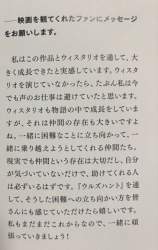 ――映画を観てくれたファンにメッセージ
をお願いします。
私はこの作品とウィスタリオを通して、大
きく成長できたと実感しています。ウィスタリ
オを演じていなかったら、たぶん私は今
でも声のお仕事は避けていたと思います。
ウィスタリオも物語の中で成長をしています
が、それは仲間の存在も大きいですよ
ね。一緒に困難なことに立ち向かって、一
緒に乗り越えようとしてくれる仲間たち。
現実でも仲間という存在は大切だし、自分
が気づいていないだけで、助けてくれる人
は必ずいるはずです。『ウルズハント』を通
して、そうした困難への立ち向かい方を皆
さんにも感じていただけたら嬉しいです。
私もまだまだこれからなので、一緒に頑
張っていきましょう！